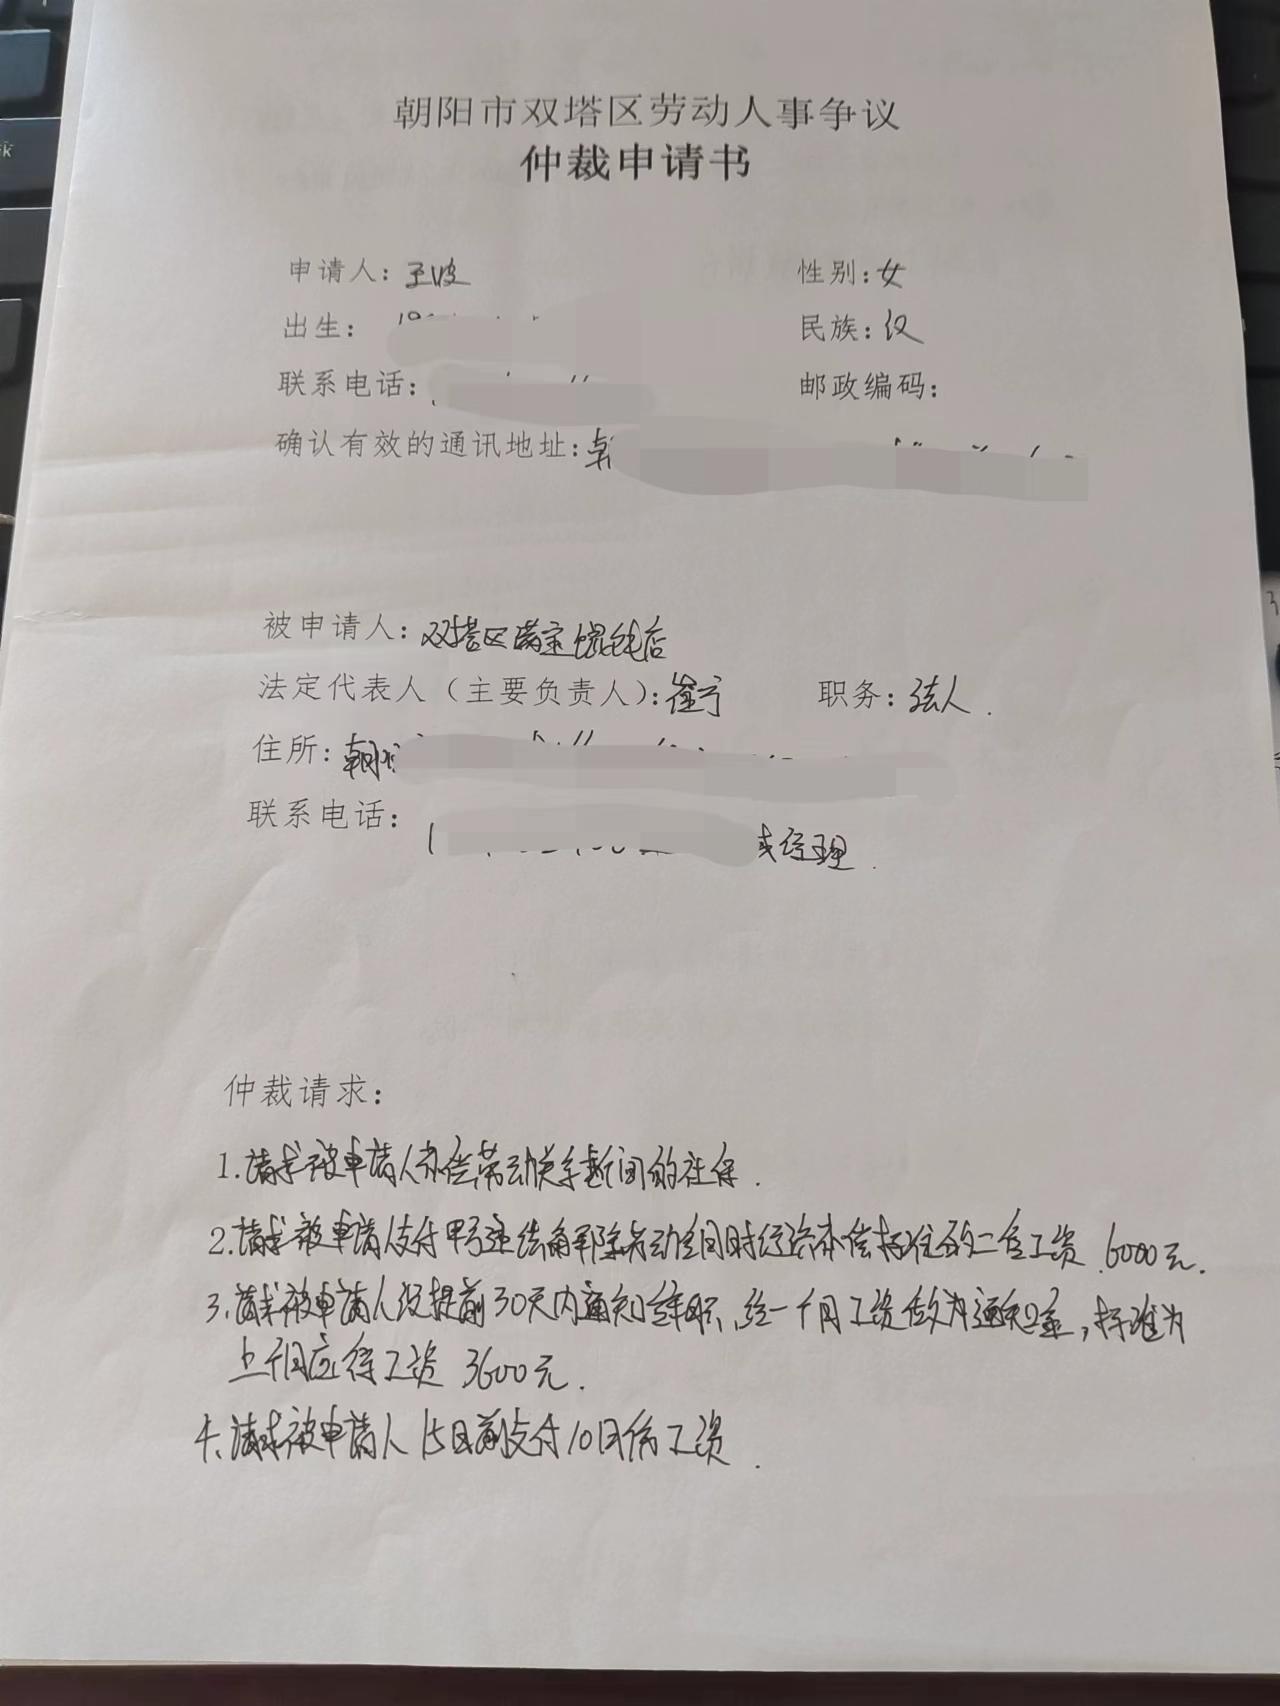 朝阳市双塔区劳动人事争议
仲裁申请书
申请人: 王波 性别: 女
出生: 19
民族: 汉
联系电话:
邮政编码:
确认有效的通讯地址: 朝
被申请人: 双塔区满宝馄饨店
法定代表人（主要负责人）: 崔宁 职务: 法人.
住所: 朝阳
联系电话: 1 经理.
仲裁请求:
1.请求被申请人补偿劳动关系期间的社保.
2.请求被申请人支付甲方违法解除劳动合同时经济补偿标准的二倍工资 6000元.
3.请求被申请人没提前30天内通知辞职,给一个月工资做为通知金,标准为
上个月应得工资 3600元.
4.请求被申请人15日前支付10月份工资.